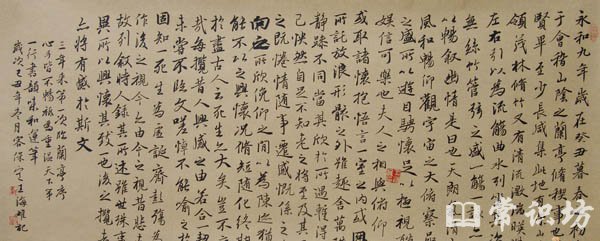 永和九年歲在癸丑暮春之初
于會稽山陰之蘭亭脩稧事也
賢畢至少長咸集此地有
領茂林脩竹又有清流激湍暎
左右引以為流觴曲水列坐其次
無絲竹管弦之盛一觴一
以暢敘幽情是日也天朗氣
風和暢仰觀宇宙之大俯察品
之盛所以遊目騁懷足以極視聽
娛信可樂也夫人之相與俯仰
或取諸懷抱悟言一室之內或因
所託放浪形骸之外雖趣舍萬
靜躁不同當其欣於所遇輒得
己怏然自足不知老之將至及其
之既惓情隨事遷感慨係之
向之所欣俛仰之間以為陳迹猶
能不以之興懷況脩短隨化終期
於盡古人云死生亦大矣豈不
哉每攬昔人興感之由若合一契
未嘗不臨文嗟悼不能喻之於
固知一死生為虛誕齊彭殤為
作後之視今亦由今之視昔悲夫
故列敘時人錄其所述雖世殊事
異所以興懷其致一也後之攬者
亦將有感於斯文
三年來第一次臨蘭亭序
心手皆不暢為重返天下第
一行書韻味和運筆
歲次己丑年冬月容保定王海雄記
常識坊